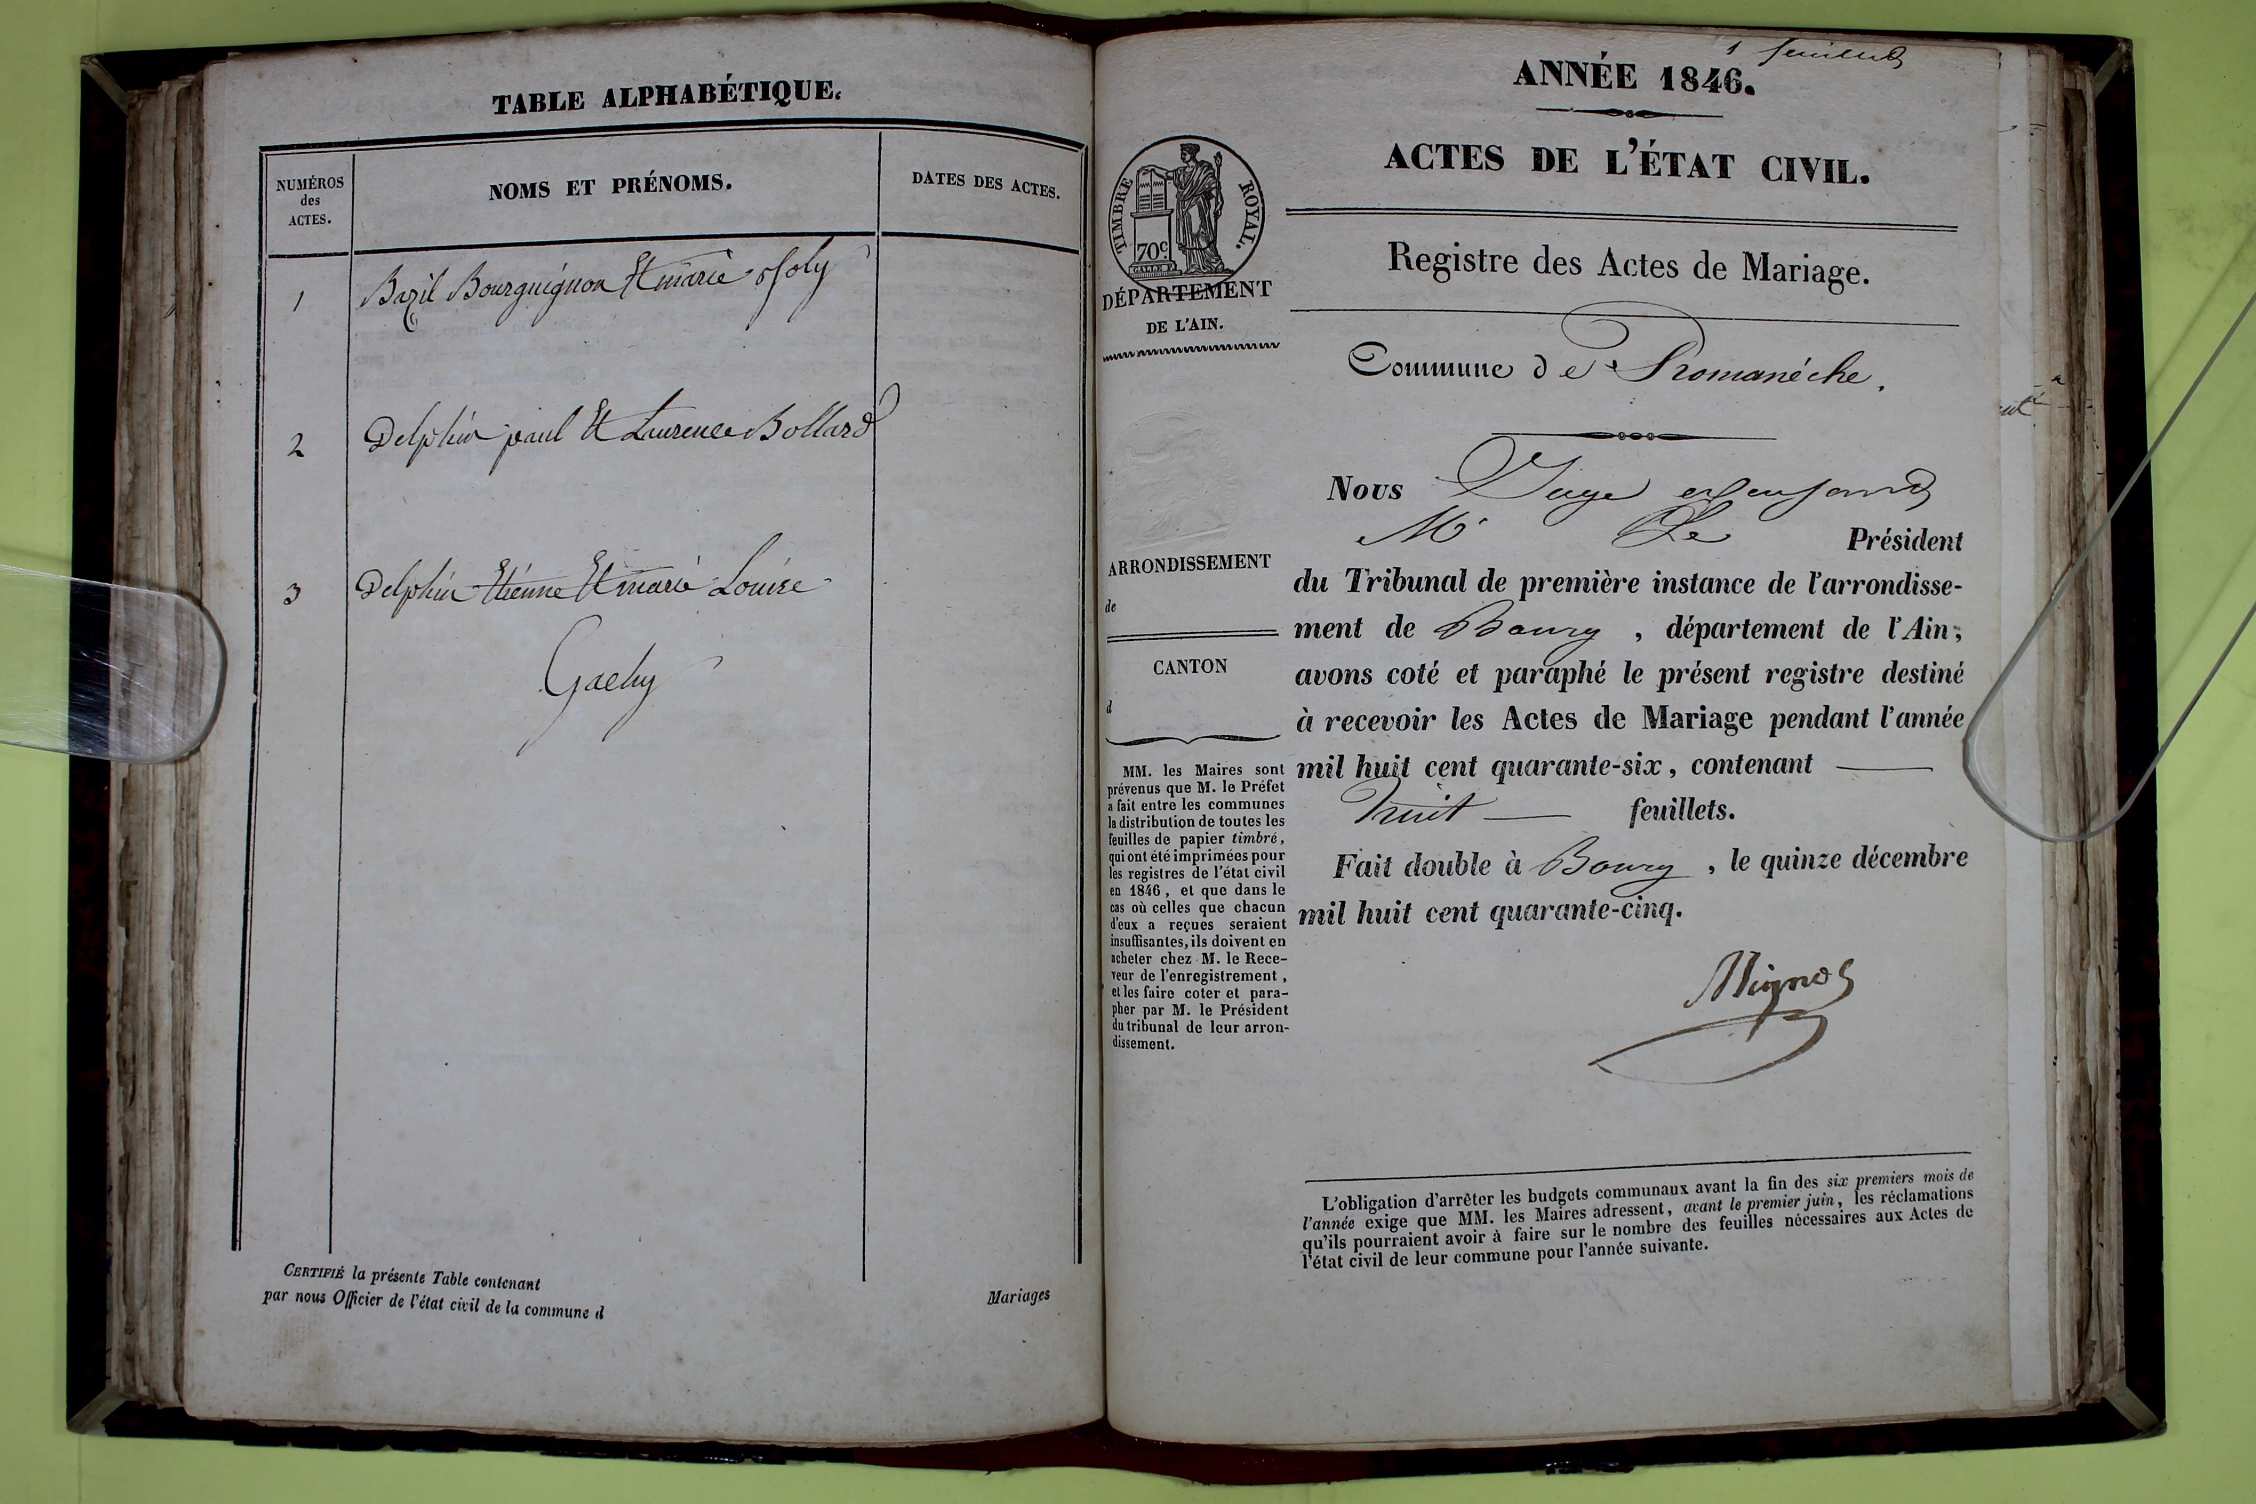 TABLE ALPHABÉTIQUE.
NUMÉROS
des
ACTES.
NOMS ET PRÉNOMS.
DATES DES ACTES.
1 Bazil Bourguignon Et marie Joly
2 Delphin paul Et Laurence Bollard
3 Delphin Etienne Et marie Louise
Gachy
CERTIFIÉ la présente Table contenant
par nous Officier de l'état civil de la commune d
Mariages
1 feuillet
ANNÉE 1846.
ACTES DE L'ÉTAT CIVIL.
TIMBRE ROYAL.
70c
DÉPARTEMENT
DE L'AIN.
Registre des Actes de Mariage.
Commune de Romanéche.
ARRONDISSEMENT
de
CANTON
d
MM. les Maires sont
prévenus que M. le Préfet
a fait entre les communes
la distribution de toutes les
feuilles de papier timbré,
qui ont été imprimées pour
les registres de l'état civil
en 1846, et que dans le
cas où celles que chacun
d'eux a reçues seraient
insuffisantes, ils doivent en
acheter chez M. le Rece-
veur de l'enregistrement,
et les faire coter et para-
pher par M. le Président
du tribunal de leur arron-
dissement.
Nous Juge
Mr Le Président
du Tribunal de première instance de l'arrondisse-
ment de Bourg, département de l'Ain,
avons coté et paraphé le présent registre destiné
à recevoir les Actes de Mariage pendant l'année
mil huit cent quarante-six, contenant —
huit — feuillets.
Fait double à Bourg, le quinze décembre
mil huit cent quarante-cinq.
L'obligation d'arrêter les budgets communaux avant la fin des six premiers mois de
l'année exige que MM. les Maires adressent, avant le premier juin, les réclamations
qu'ils pourraient avoir à faire sur le nombre des feuilles nécessaires aux Actes de
l'état civil de leur commune pour l'année suivante.